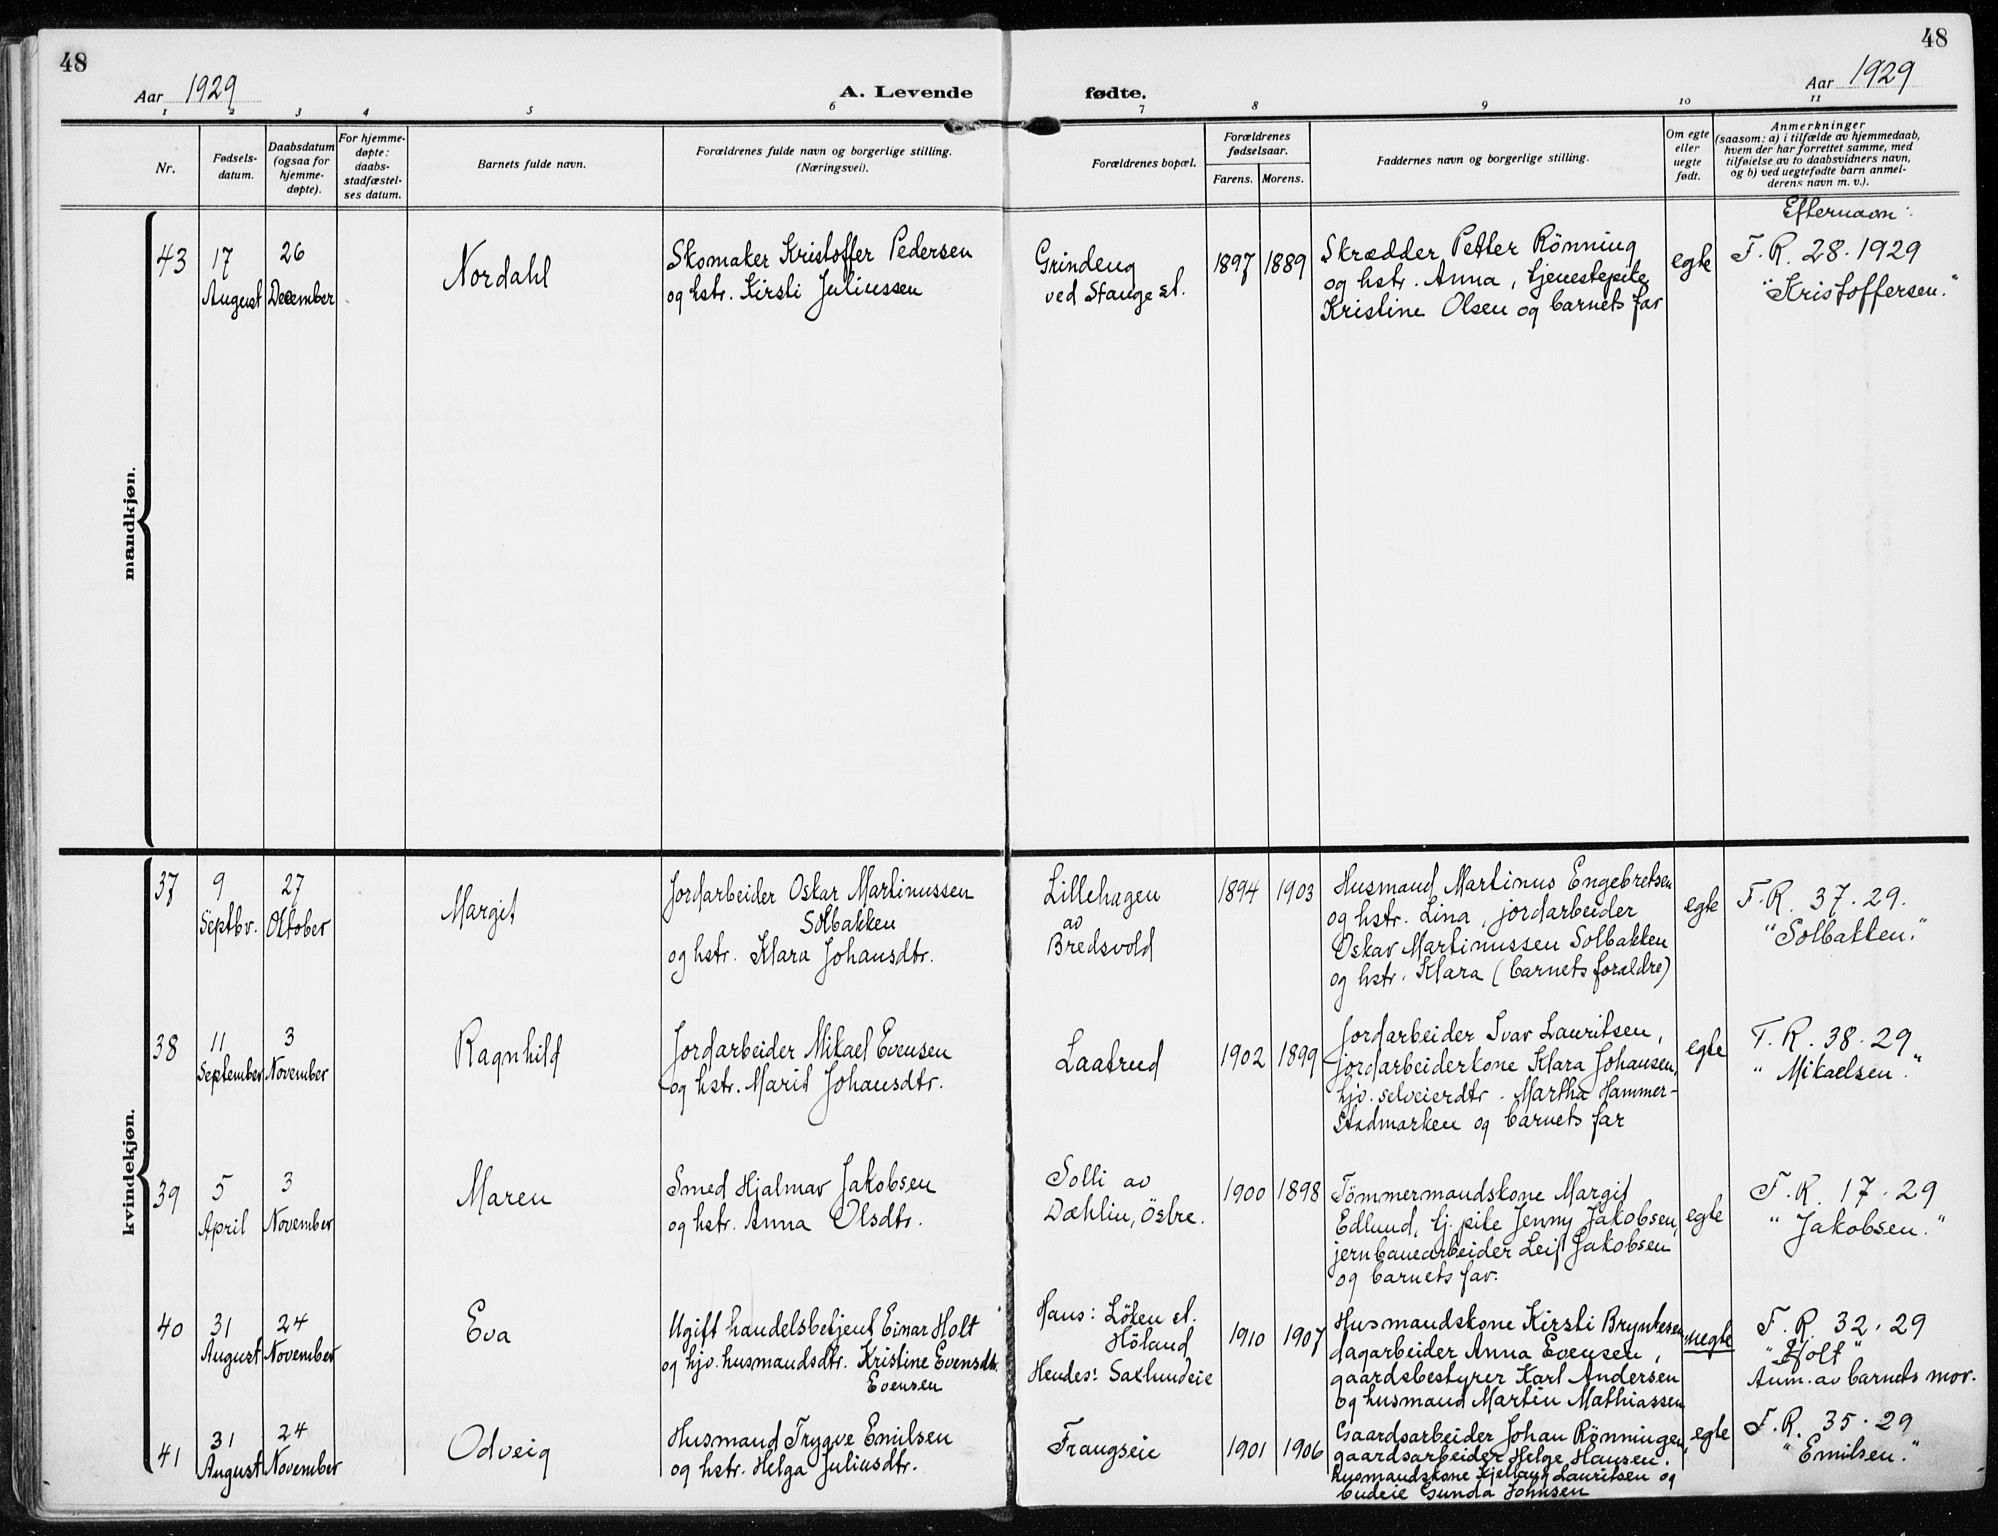 48
48
Aar 1929
A. Levende
fødte.
Aar 1929
1 2 3 4 5 6 7 8 9 10 11
Nr.
Fødsels-
datum.
Daabsdatum
(ogsaa for
hjemme-
døpte).
For hjemme-
døpte:
daabs-
stadfæstel-
ses datum.
Barnets fulde navn.
Forældrenes fulde navn og borgerlige stilling.
(Næringsvei).
Forældrenes bopæl.
Forældrenes
fødselsaar.
Farens. Morens.
Faddernes navn og borgerlige stilling.
Om egte
eller
uegte
født.
Anmerkninger
(saasom: a) i tilfælde av hjemmedaab,
hvem der har forrettet samme, med
tilføielse av to daabsvidners navn,
og b) ved uegtefødte barn anmel-
derens navn m. v.).
mandkjøn.
43
17
August
26
December
Nordahl
Skomaker Kristoffer Pedersen
og hstr. Kirsti Juliussen
Grindeng
ved Stange st.
1897
1889
Skrædder Petter Rönning
og hstr. Anna, tjenestepike
Kristine Olsen og barnets far
egte
Efternavn:
F. R. 28. 1929
"Kristoffersen."
kvindekjøn.
37
9
Septbr.
27
Oktober
Margit
Jordarbeider Oskar Martinussen
Solbakken
og hstr. Klara Johansdtr.
Lillehagen
av
Bredsvold
1894
1903
Husmand Martinus Engebretsen
og hstr. Lina, jordarbeider
Oskar Martinussen Solbakken
og hstr. Klara (barnets forældre)
egte
F. R. 37. 29.
"Solbakken."
38
11
September
3
November
Ragnhild
Jordarbeider Mikael Evensen
og hstr. Marit Johansdtr.
Laatrud
1902
1899
Jordarbeider Ivar Lauritsen,
jordarbeiderkone Klara Johansen,
hjv. selveierdtr. Martha Hammer-
stadmarken og barnets far
egte
F. R. 38. 29
"Mikaelsen."
39
5
April
3
November
Maren
Smed Hjalmar Jakobsen
og hstr. Anna Olsdtr.
Solli av
Dæhlin, Östre.
1900
1898
Tömmermandskone Margit
Edlund, tj. pike Jenny Jakobsen,
jernbanearbeider Leif Jakobsen
og barnets far.
egte
F. R. 17. 29
"Jakobsen."
40
31
August
24
November
Eva
Ugift handelsbetjent Einar Holt
og hjv. husmandsdtr. Kristine Evensdtr.
Evensen
Hans: Löken st.
Höland
Hendes: Saxlundeie
1910
1907
Husmandskone Kirsti Bryntesen
dagarbeider Anna Evensen,
gaardsbestyrer Karl Andersen
og husmand Martin Mathiassen
uegte
F. R. 32. 29
"Holt"
Anm. av barnets mor.
41
31
August
24
November
Odveig
Husmand Trygve Emilsen
og hstr. Helga Juliusdtr.
Frangseie
1901
1906
Gaardsarbeider Johan Rönningen,
gaardsarbeider Helge Hansen.
husmandskone Kjellaug Lauritsen og
budeie Gunda Johnsen
egte
F. R. 35. 29
"Emilsen."